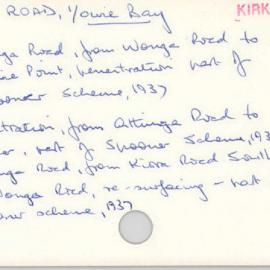 ROAD, Yowie Bay
KIRK
nga Road, from Wonga Road to
ie Point, penetration part of
ooner Scheme, 1937
tration, from Attunga Road to
er, part of Spooner Scheme, 193
nga Road, from Kiora Road South
Wonga Road, re-surfacing - part
oner scheme, 1937